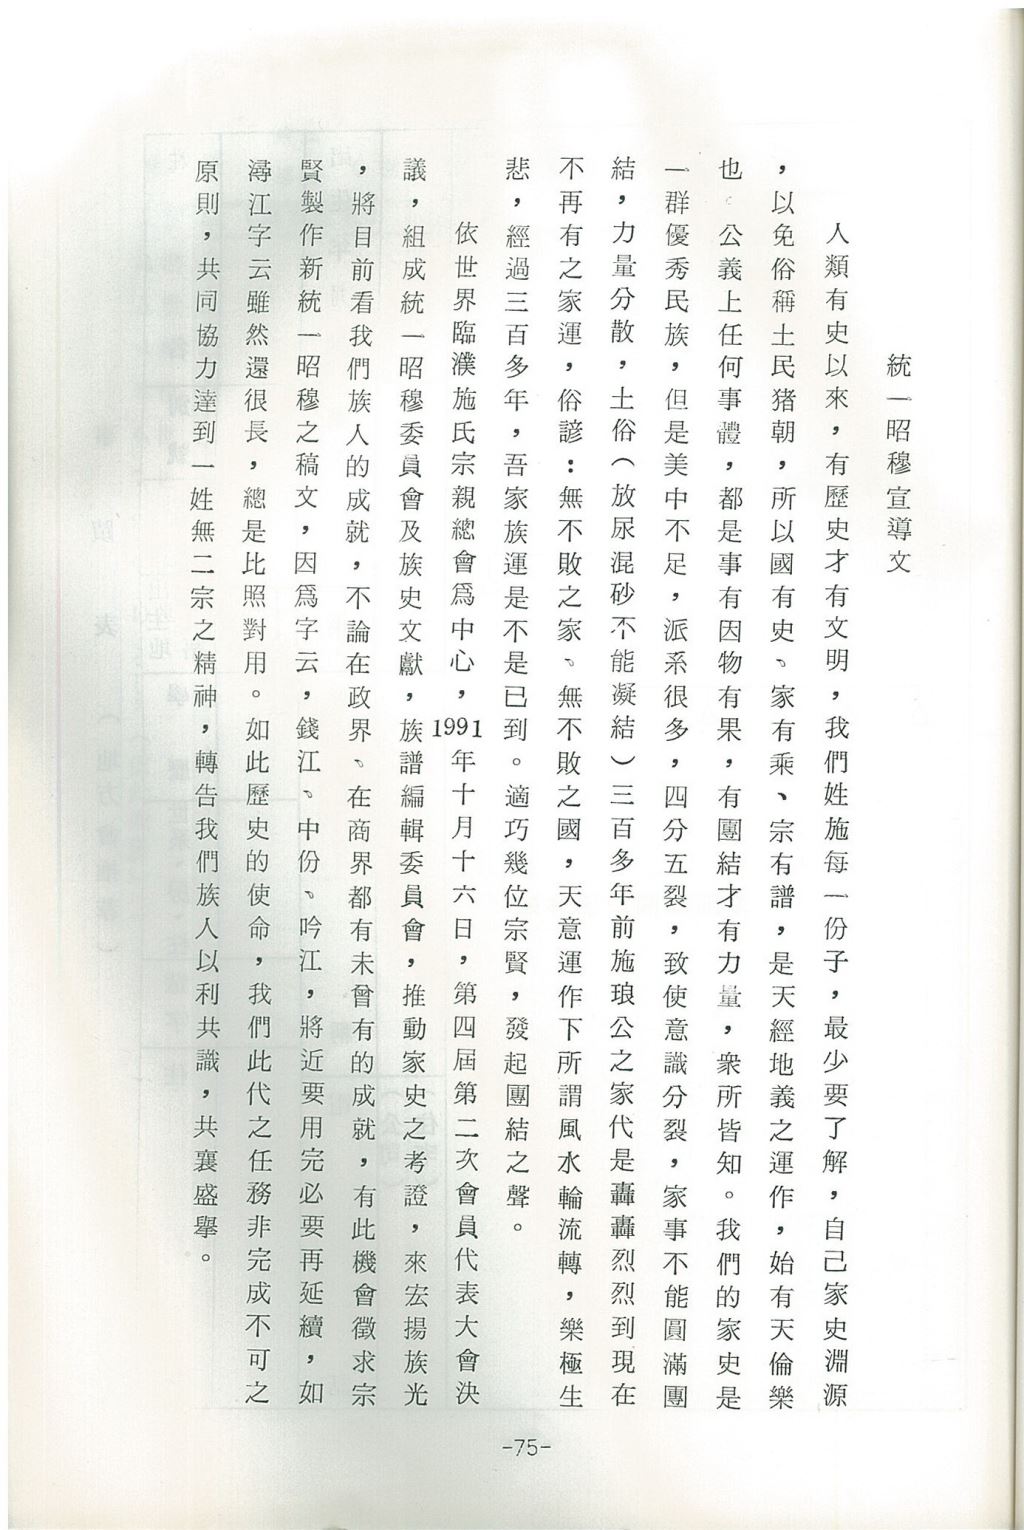 統一昭穆宣導文
人類有史以來，有歷史才有文明，我們姓施每一份子，最少要了解，自己家史淵源
，以免俗稱土民猪朝，所以國有史、家有乘、宗有譜，是天經地義之運作，始有天倫樂
也。公義上任何事體，都是事有因物有果，有團結才有力量，衆所皆知。我們的家史是
一群優秀民族，但是美中不足，派系很多，四分五裂，致使意識分裂，家事不能圓滿團
結，力量分散，土俗（放尿混砂不能凝結）三百多年前施琅公之家代是轟轟烈烈到現在
不再有之家運，俗諺：無不敗之家、無不敗之國，天意運作下所謂風水輪流轉，樂極生
悲，經過三百多年，吾家族運是不是已到。適巧幾位宗賢，發起團結之聲。
依世界臨濮施氏宗親總會爲中心，1991年十月十六日，第四屆第二次會員代表大會決
議，組成統一昭穆委員會及族史文獻，族譜編輯委員會，推動家史之考證，來宏揚族光
，將目前看我們族人的成就，不論在政界、在商界都有未曾有的成就，有此機會徵求宗
賢製作新統一昭穆之稿文，因爲字云，錢江、中份、吟江，將近要用完必要再延續，如
潯江字云雖然還很長，總是比照對用。如此歷史的使命，我們此代之任務非完成不可之
原則，共同協力達到一姓無二宗之精神，轉告我們族人以利共識，共襄盛擧。
-75-